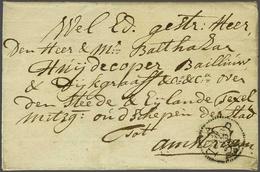 Wel Ed. gestr: Heer
Den Heer & Mr: Balthazar
Huijdecoper Bailliuw
& Dijkgraaff &c &c over
den Steede & Eijlande Texel
mitzg: oud Schepen der Stad
Tott
Amsterdam